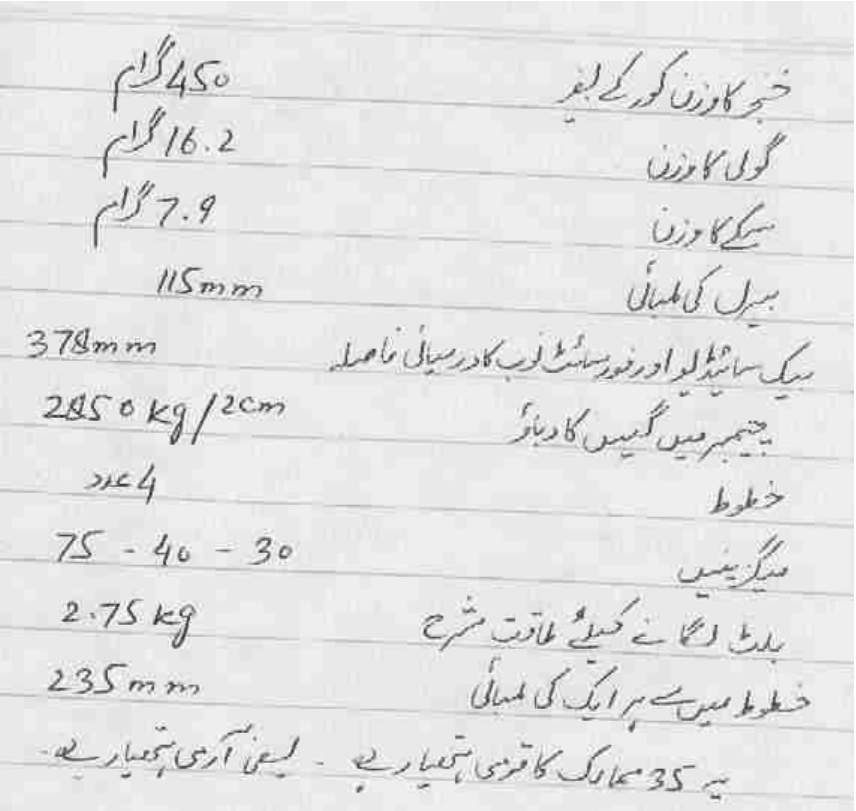 خنجر کا وزن کور کے بغیر 450 گرام
گولی کا وزن 16.2 گرام
سکے کا وزن 7.9 گرام
بیرل کی لمبائی 115mm
بیک سائیڈ لیو اور فور سائٹ لوب کا درمیانی فاصلہ 378mm
چیمبر میں گیس کا دباؤ 2850 kg/2cm
خطوط 4 عدد
میگزینیں 30 - 40 - 75
بلٹ لگانے کیلئے طاقت شرح 2.75 kg
خطوط میں سے ہر ایک کی لمبائی 235mm
یہ 35 ممالک کا قومی ہتھیار ہے ۔ یعنی آرمی ہتھیار ہے۔